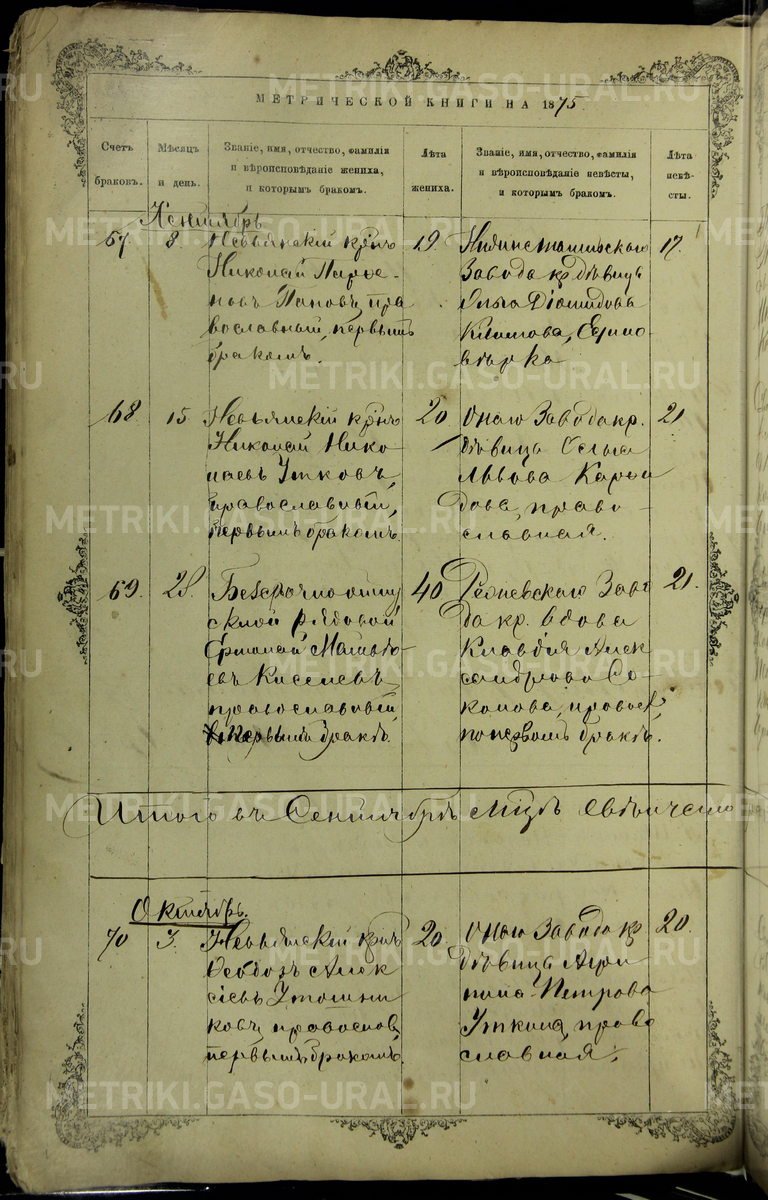 МЕТРИЧЕСКОЙ КНИГИ НА 1875.
Счетъ браковъ.
Мѣсяцъ и день.
Званіе, имя, отчество, фамилія и вѣроисповѣданіе жениха, и которымъ бракомъ.
Лѣта жениха.
Званіе, имя, отчество, фамилія и вѣроисповѣданіе невѣсты, и которымъ бракомъ.
Лѣта невѣсты.
Сентябрь
67. 8. Невьянскій крнъ 19.
Николай Парѳе-
новъ Поповъ, пра
вославный, первымъ
бракомъ.
Завода кр. дѣвица 17.
Ольга Діомидова
Едино-
вѣрка
68 15 Невьянскій крнъ 20
Николай Нико-
лаевъ Утковъ,
православный,
первымъ бракомъ
Онаго Завода кр. 21
дѣвица
Львова
право-
славная.
69. 28. Безсрочно отпу 40
скной рядовой
Ермолай Матвѣ-
евъ Киселевъ,
православный,
первымъ бракѣ.
Режевскаго Заво 21.
да кр. вдова
Клавдія Алек
сандрова Со-
колова, правосл,
по первомъ бракѣ.
Итого въ Сентябрѣ м҃цѣ свѣнчано
Октябрь.
70 3. Невьянскій крнъ 20.
Ѳеодоръ Алек
сіевъ
ковъ, правослов,
первымъ бракомъ.
Онаго Завода кр 20.
дѣвица Агри
пина Петрова
Уткина, право
славная.
METRIKI.GASO-URAL.RU